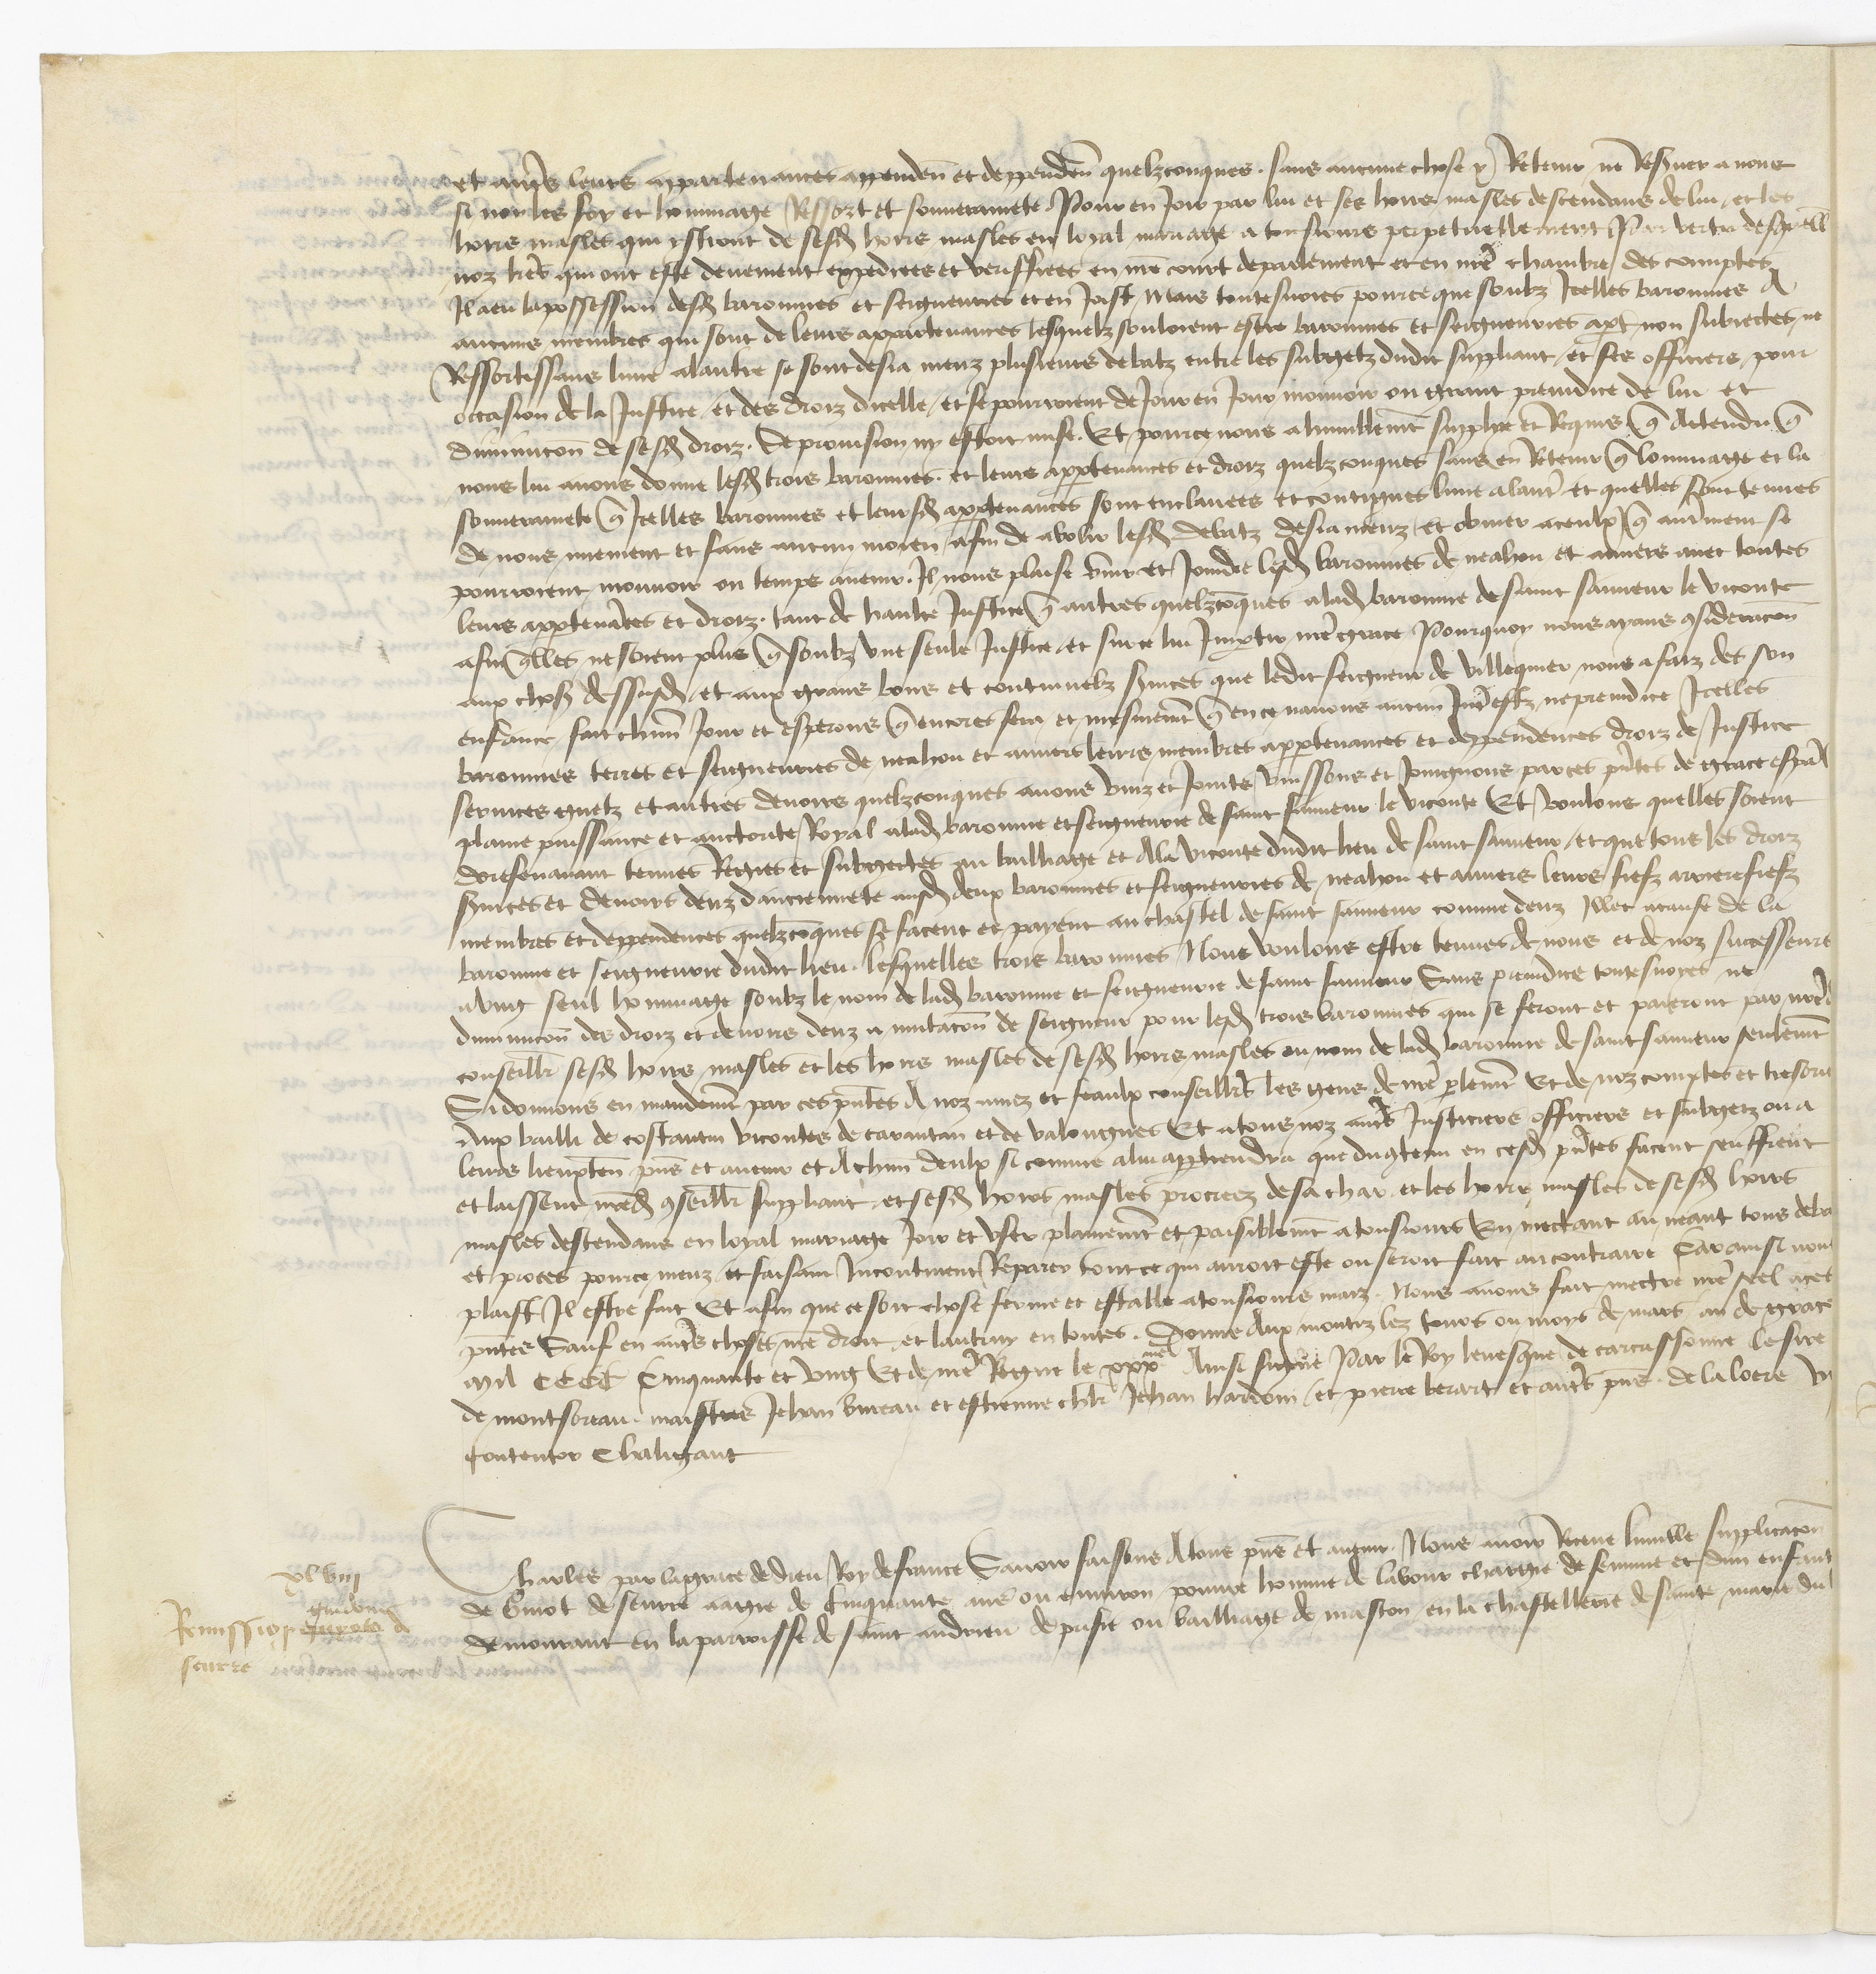 et autres leurs appartenances appenden et deppenden quelzconques. sans aucune chose y Retenir ne Reserver a nous
si non les foy et hommage Ressort et souverainete. Pour en Joir par lui et ses hoirs masles descendans de lui et les
hoirs masles qui ystront de sesd hoirs masles en loyal mariage a tousiours perpetuellement Par vertu desquelles
noz lres qui ont este deuement expediees et veriffiees en nre court de parlement et en nre chambre des comptes
Il a eu la possession desd baronnies et seigneuries et en Joist Mais toutesvoies pource que soubz Icelles baronnies A
aucuns membres qui sont de leurs appartenances lesquelz souloient estre baronnies et seigneuries apt non subiectes ne
Ressortissans lune alautre se sont desia meuz plusieurs debatz entre les subgetz dudit suppliant et ses officiers pour
occasion de la Justice et des droiz dicelle et se pourroient de Jour en Jour mouvoir ou grant preiudice de lui et
diminucon de sesd droiz. Se provision ny estoit mise. Et pource nous a humblemt supplie et Requis q Attendu q
nous lui avons donne lesd trois baronnies. et leurs appartenances et droiz quelzconques sans en Retenir q lommage et la
souverainete q Icelles baronnies et leursd appartenances sont enclavees et contigues lune a lautre et quelles sont tenues
de nous nuement et sans aucun moien afin de abolir lesd debatz desia meuz et obvier a ceulx q autrement se
pourroient mouvoir ou temps avenir. Il nous plaise unir et Joindre lesd baronnies de neahou et auvers avec toutes
leurs appartenances et droiz. tant de haulte Justice q autres quelzconques a lad baronnie de saint sauveur le viconte
afin qlles ne soient plus q soubz une seule Justice et sur ce lui Impartir nre grace Pourquoy nous ayans consideracon
aux choses dessusd et aux grans bons et continuelz services que ledit seigneur de villequier nous a faiz des son
enfance fait chun Jour et esperons q encores fera et mesmemt q en ce navons aucun Interestz ne preiudice Icelles
baronnies terres et seigneuries de neahou et auvers leurs membres appartenances et deppendences droiz de Justice
services guetz et autres devoirs quelzconques avons uniz et Joints unissons et Joingnons par ces pntes de grace espal
plaine puissance et auctorite Royal a lad baronnie et seigneurie de saint sauveur le viconte Et voulons quelles soient
doresenavant tenues Regies et subgectes au bailliage et Ala viconte dudit lieu de saint sauveur et que tous les droiz
services et devoirs deuz danciennete ausd deux baronnies et seigneuries de neahou et auvers leurs fiefz arrierefiefz
membres et deppendences quelzconques se facent et payent au chastel de saint sauveur comme deuz Illec a cause de la
baronnie et seigneurie dudit lieu. lesquelles trois baronnies Nous voulons estre tenues de nous et de noz successeurs
a ung seul hommage soubz le nom de lad baronnie et seigneurie de saint sauveur Sans preiudice toutesvoies ne
diminucon des droiz et devoirs deuz a mutacon de seigneur pour lesd trois baronnies qui se feront et paieront par nred
conseillr sesd hoirs masles et les hoirs masles de sesd hoirs masles ou nom de lad baronnie de saint sauveur seulemt
Si donnons en mandemt par ces pntes A noz amez et feaulx conseillrs les gens de nre parlemt Et de noz comptes et tresori
Aux bailli de costantin vicontes de carantan et de valongnes Et a tous noz autres Justiciers officiers et subgetz ou a
leurs lieuxten pns et avenir et A chun deulx si comme a lui appartiendra que du contenu en cesd pntes facent seuffrent
et laissent nred conseillr suppliant et sesd hoirs masles procreez de sa char et les hoirs masles de sesd hoirs
masles descendans en loyal mariage Joir et user plainemt et paisiblemt a tousiours En mectant au neant tous deba
et proces pource meuz et faisant Incontinent Reparer tout ce qui auroit este ou seroit fait au contraire Car ainsi nous
plaist Il estre fait Et afin que ce soit chose ferme et estable a tousiours maiz. Nous avons fait mectre nre seel a ces
pntes Sauf en autres choses nre droit et lautruy en toutes. Donne Aux montiz lez tours ou moys de mars an de grace
mil CCCC Cinquante et ung Et de nre Regne le xxxme Ainsi signe Par le Roy levesque de carcassonne le sire
de montsoreau. maistres Jehan bureau et estienne chlr Jehan hardoin et pierre berart et autres pns. de la loere v
Contentor Chaligaut
Charles par la grace de dieu Roy de france Savoir faisons A tous pns et avenir. Nous avoir Receue lumble supplicacon
de Guiot de seurre aagie de Cinquante ans ou environ povre homme de labour chargie de femme et dun enfant
demourant en la parroisse de saint andrieu de prisse ou bailliage de mascon en la chastellenie de sainte marie du
xlviii
Remission
seurre